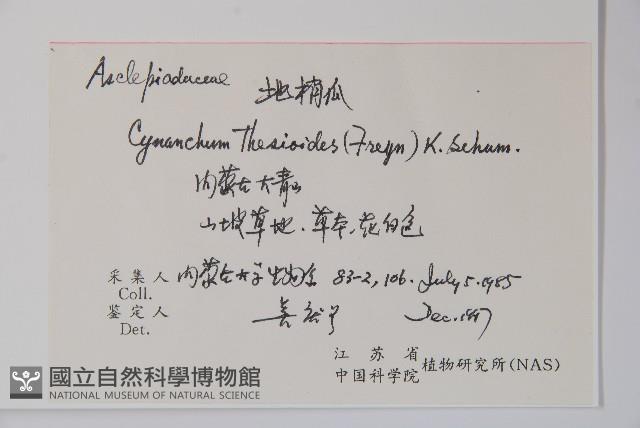 Asclepiadaceae 地梢瓜
Cynanchum Thesioides (Freyn) K. Schum.
内蒙古大青山
山坡草地.草本,花白色
采集人 内蒙古大学生物系 83-2, 106. July 5. 1985
Coll.
鉴定人
Det.
江苏省
中国科学院 植物研究所(NAS)
國立自然科學博物館
NATIONAL MUSEUM OF NATURAL SCIENCE